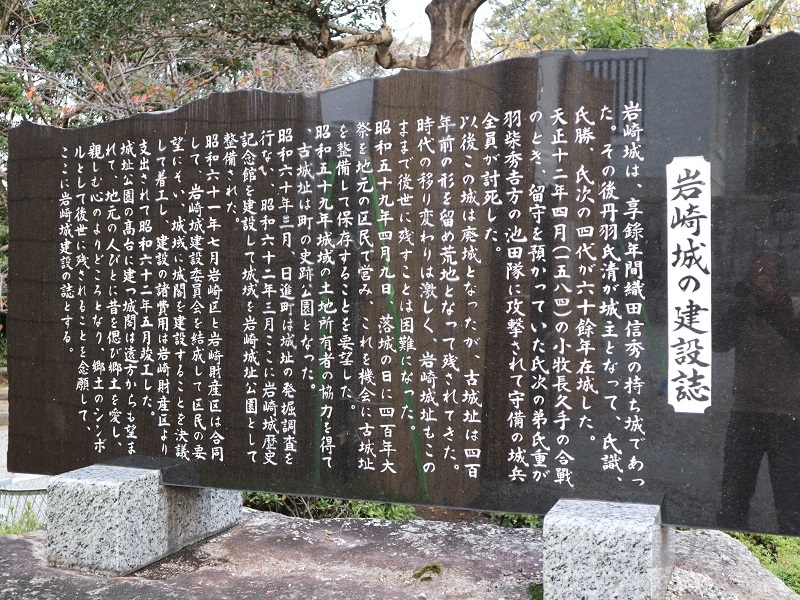 岩崎城の建設誌
岩崎城は、享録年間織田信秀の持ち城であっ
た。その後丹羽氏清が城主となって、氏識、
氏勝、氏次の四代が六十餘年在城した。
天正十二年四月(一五八四)の小牧長久手の合戦
のとき、留守を預かっていた氏次の弟氏重が
羽柴秀吉方の池田隊に攻撃されて守備の城兵
全員が討死した。
以後この城は廃城となったが、古城址は四百
年前の形を留め荒地となって残されてきた。
時代の移り変わりは激しく、岩崎城址もこの
ままで後世に残すことは困難になった。
昭和五十九年四月九日、落城の日に四百年大
祭を地元の区民で営み、これを機会に古城址
を整備して保存することを要望した。
昭和五十九年城域の土地所有者の協力を得て
、古城址は町の史跡公園となった。
昭和六十年三月、日進町は城址の発掘調査を
行ない、昭和六十二年三月ここに岩崎城歴史
記念館を建設して城域を岩崎城址公園として
整備された。
昭和六十一年七月岩崎区と岩崎財産区は合同
して、岩崎城建設委員会を結成して区民の要
望にそい、城域に城閣を建設することを決議
して着工し、建設の諸費用は岩崎財産区より
支出されて昭和六十二年五月竣工した。
城址公園の高台に建つ城閣は遠方からも望ま
れて、地元の人びとに昔を偲び郷土を愛し、
親しも心のよりどころとなり、郷土のシンボ
ルとして後世に残されることを念願して、
ここに岩崎城建設の誌とする。